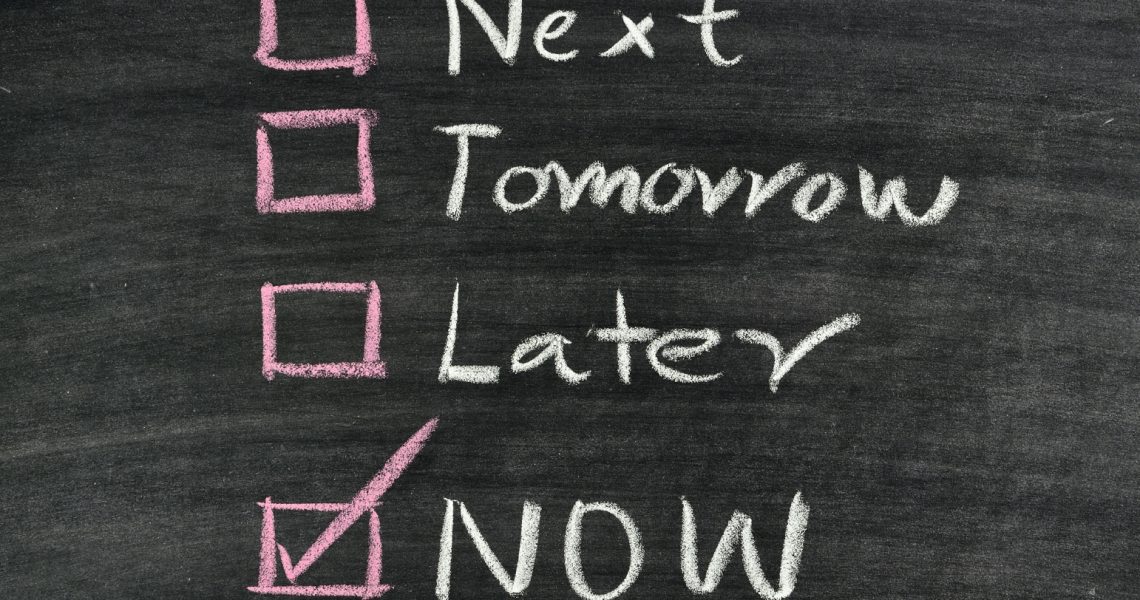 Next
Tomorrow
Later
NOW